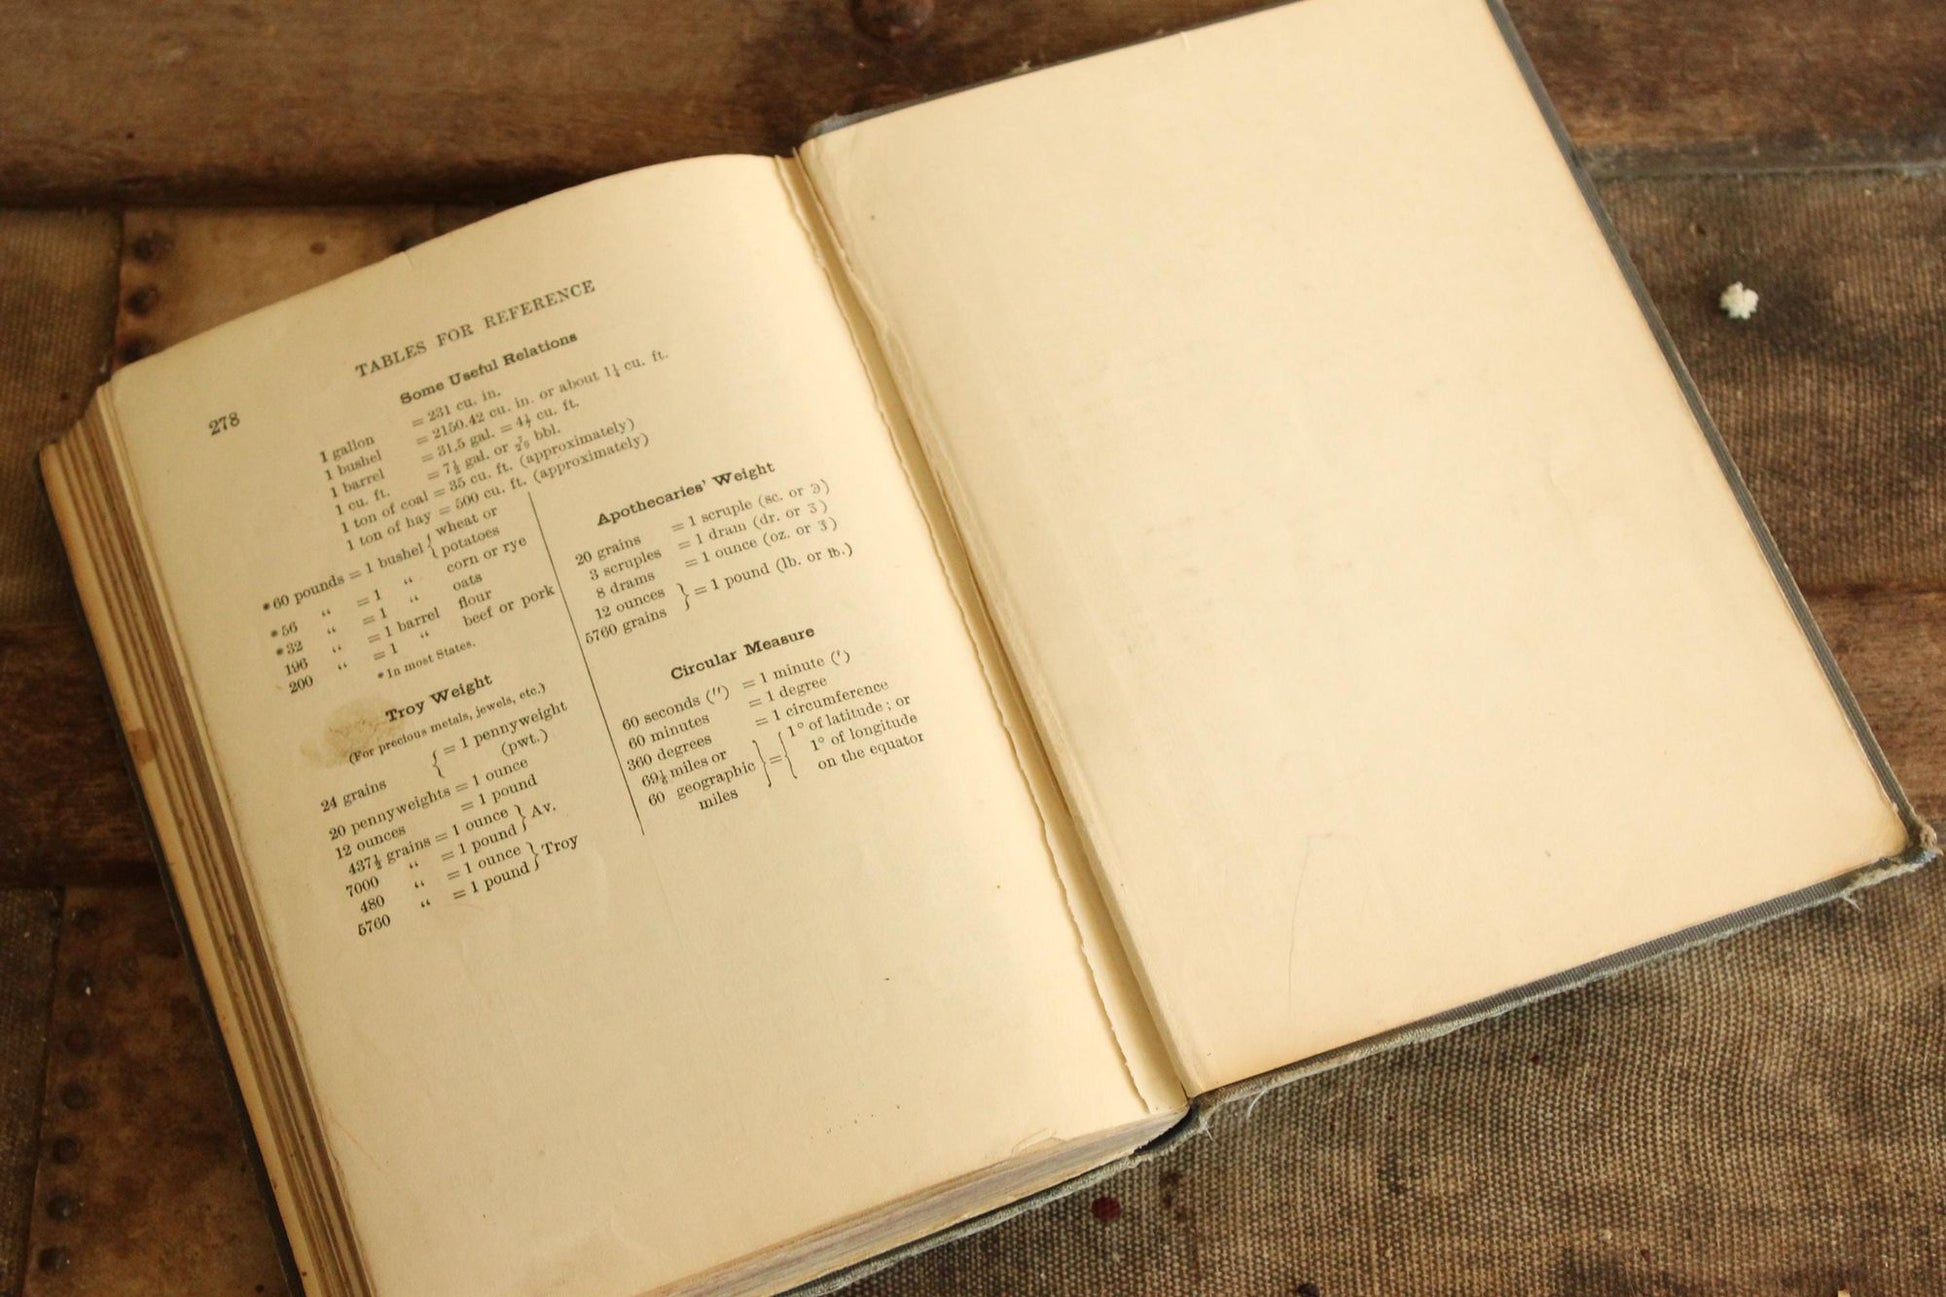 278
TABLES FOR REFERENCE
Some Useful Relations
1 gallon = 231 cu. in.
1 bushel = 2150.42 cu. in. or about 1¼ cu. ft.
1 barrel = 31.5 gal. = 4⅕ cu. ft.
1 cu. ft. = 7½ gal. or bbl.
1 ton of coal = 35 cu. ft. (approximately)
1 ton of hay = 500 cu. ft. (approximately)
*60 pounds = 1 bushel { wheat or
potatoes
*56 “ = 1 “ corn or rye
*32 “ = 1 “ oats
196 “ = 1 barrel flour
200 “ = 1 “ beef or pork
*In most States.
Troy Weight
(For precious metals, jewels, etc.)
24 grains { = 1 pennyweight
(pwt.)
20 pennyweights = 1 ounce
12 ounces = 1 pound
437½ grains = 1 ounce } Av.
7000 “ = 1 pound
480 “ = 1 ounce } Troy
5760 “ = 1 pound
Apothecaries' Weight
20 grains = 1 scruple (sc. or ℈)
3 scruples = 1 dram (dr. or ʒ)
8 drams = 1 ounce (oz. or ℥)
12 ounces } = 1 pound (lb. or ℔.)
5760 grains
Circular Measure
60 seconds (″) = 1 minute (′)
60 minutes = 1 degree
360 degrees = 1 circumference
69⅛ miles or } = { 1° of latitude; or
60 geographic 1° of longitude
miles on the equator